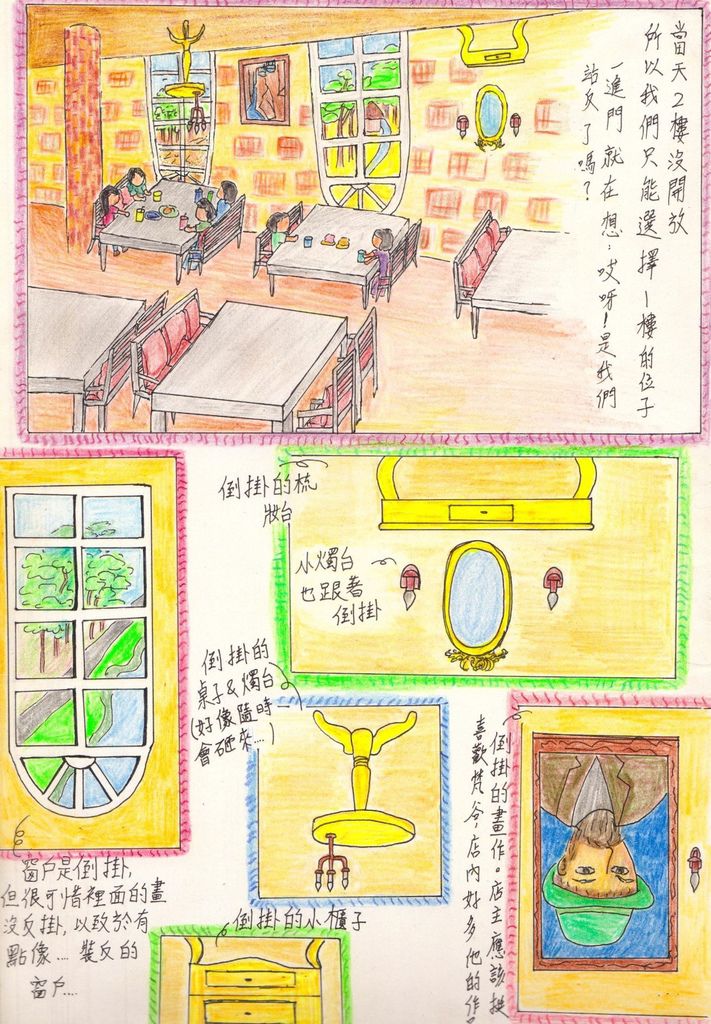 當天2樓沒開放
所以我們只能選擇1樓的位子
一進門就在想:哎呀!是我們
站反了嗎?
倒掛的梳
妝台
小燭台
也跟著
倒掛
倒掛的
桌子&燭台
(好像隨時
會砸來...)
倒掛的畫作。店主應該挺
喜歡梵谷,店內好多他的作
窗戶是倒掛,
但很可惜裡面的畫
沒反掛,以致於有
點像... 裝反的
窗戶...
倒掛的小櫃子